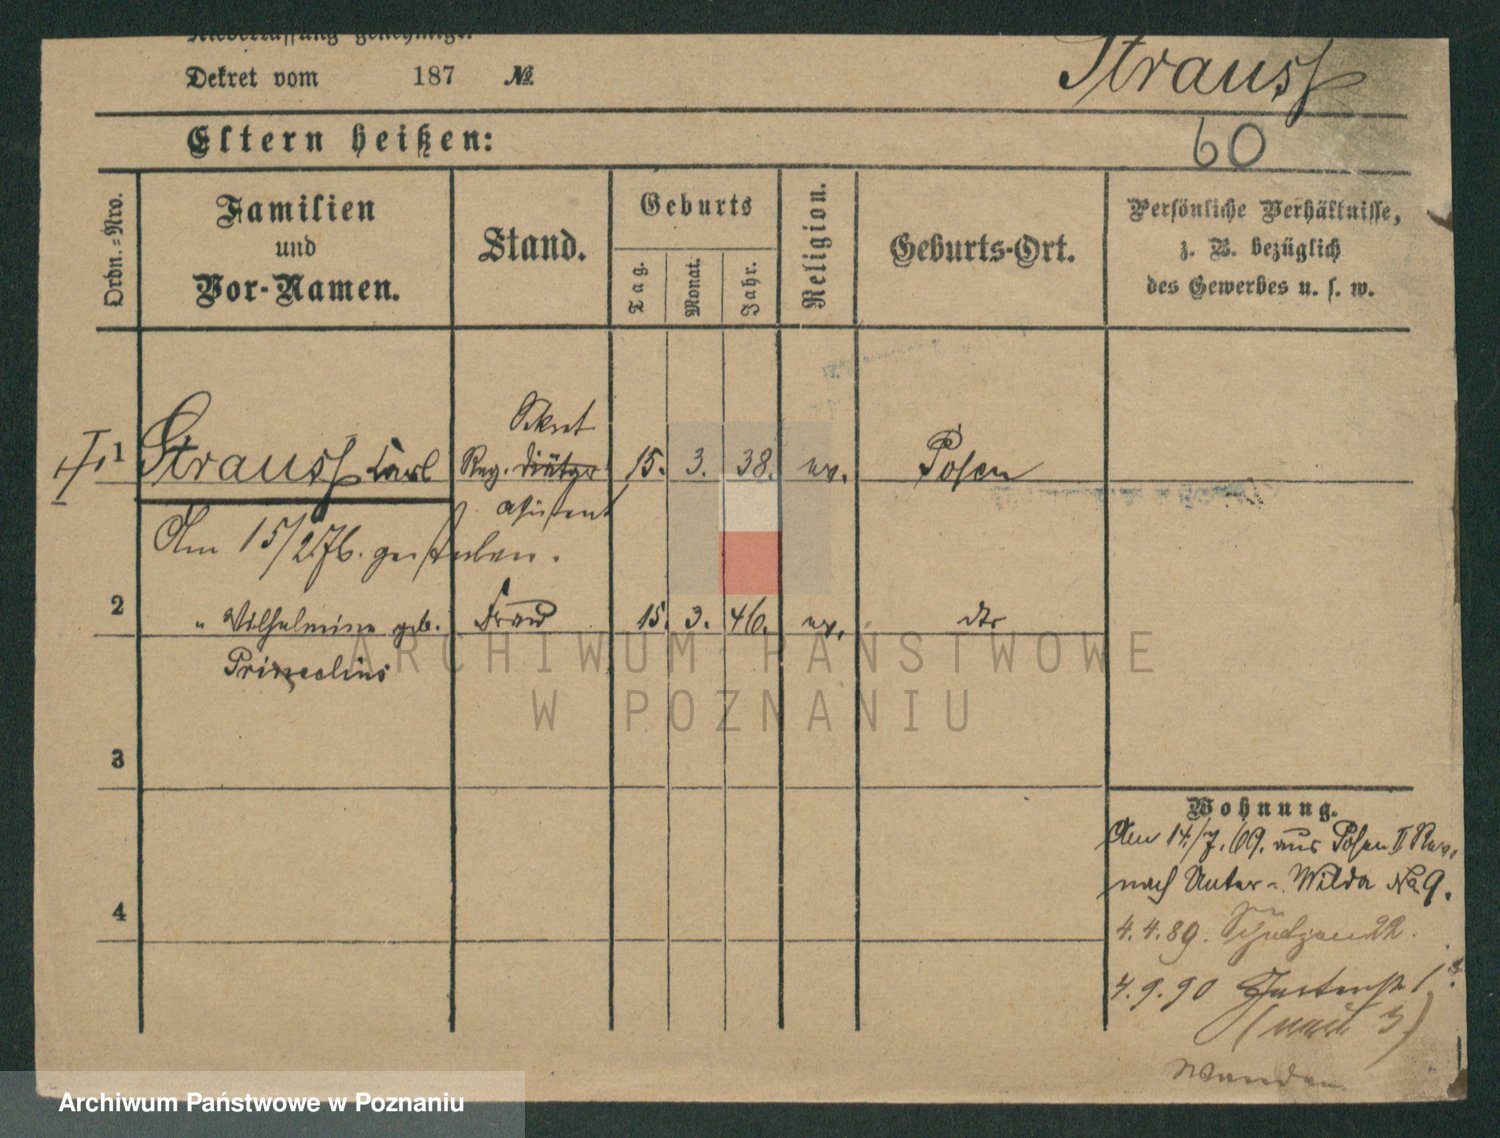 Niederlassung genehmigt.
Dekret vom 187 №
Strauss
60
Eltern heißen:
Ordn.-Nro.
Familien
und
Vor-Namen.
Stand.
Geburts
Tag.
Monat.
Jahr.
Religion.
Geburts-Ort.
Persönliche Verhältnisse,
z. B. bezüglich
des Gewerbes u. s. w.
1 Strauss Carl
Sekret
Reg. Diätar
assistent
15. 3. 38. ev. Posen
Am 15/2.76. gestorben.
2 " Wilhelmine geb. Frau 15. 3. 46. ev. dto
3
4
Wohnung.
Am 14./7. 69. aus Posen II Rev.
nach Unter-Wilda No 9.
4.4.89. Schützen 22.
4.9.90
ARCHIWUM PAŃSTWOWE
W POZNANIU
Archiwum Państwowe w Poznaniu